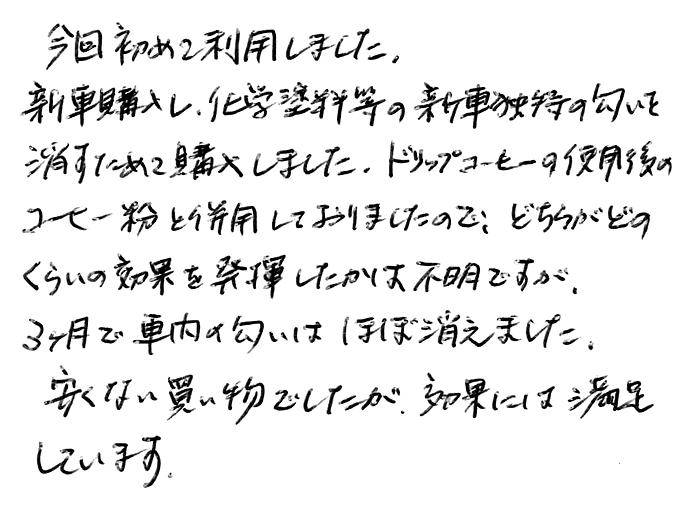 今回初めて利用しました。
新車購入し、化学塗料等の新車独特の匂いを
消すために購入しました。ドリップコーヒーの使用後の
コーヒー粉と併用しておりましたので、どちらがどの
くらいの効果を発揮したかは不明ですが、
3ヶ月で車内の匂いはほぼ消えました。
安くない買い物でしたが、効果には満足
しています。